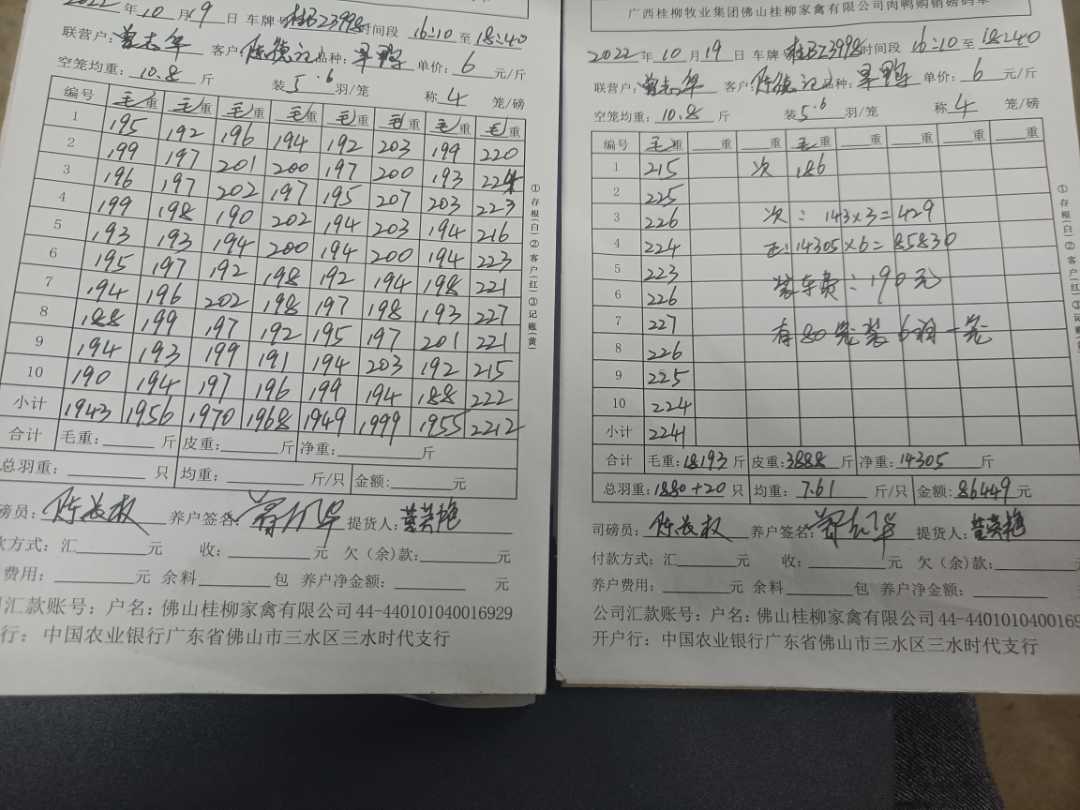 2022年10月19日 车牌 桂B23998时间段 16:10至18:40
联营户: 客户: 陈德记品种: 旱鸭 单价: 6 元/斤
空笼均重: 10.8 斤 装5.6羽/笼 称4笼/磅
编号 毛重 毛重 毛重 毛重 毛重 毛重 毛重 毛重
1 195 192 196 194 192 203 199 220
2 199 197 201 200 197 200 193 224
3 196 197 202 197 195 207 203 223
4 199 198 190 202 194 203 194 216
5 193 193 194 200 194 200 194 223
6 195 197 192 198 192 194 198 221
7 194 196 202 198 197 198 193 227
8 188 199 197 192 195 197 201 221
9 194 193 199 191 194 203 192 215
10 190 194 197 196 199 194 188 222
小计 1943 1956 1970 1968 1949 1999 1955 2212
合计 毛重:____斤 皮重:____斤 净重:____斤
总羽重:____只 均重:____斤/只 金额:____元
磅员: 陈长权 养户签名: 提货人:
款方式: 汇____元 收:____元 欠(余)款:____元
费用:____元 余料____包 养户净金额:____元
司汇款账号: 户名: 佛山桂柳家禽有限公司 44-440101040016929
行: 中国农业银行广东省佛山市三水区三水时代支行
①存根(白)②客户(红)③记账(黄)
广西桂柳牧业集团佛山桂柳家禽有限公司肉鸭购销磅码单
2022年10月19日 车牌 桂B23998时间段 16:10至18:40
联营户: 客户: 陈德记品种: 旱鸭 单价: 6 元/斤
空笼均重: 10.8 斤 装5.6羽/笼 称4笼/磅
编号 毛重 ____重 ____重 毛重 ____重 ____重 ____重 ____重
1 215 次 186
2 225
3 226 次: 143×3=429
4 224 毛:14305×6=85830
5 223 装车费:190元
6 226
7 227 有80笼装6羽一笼
8 226
9 225
10 224
小计 2241
合计 毛重:18193斤 皮重:3888斤 净重:14305斤
总羽重:1880+20只 均重: 7.61 斤/只 金额: 86449元
司磅员: 陈长权 养户签名: 提货人:
付款方式: 汇____元 收:____元 欠(余)款:____
养户费用:____元 余料____包 养户净金额:____
公司汇款账号: 户名: 佛山桂柳家禽有限公司 44-4401010400169
开户行: 中国农业银行广东省佛山市三水区三水时代支行
①存根(白)②客户(红)③记账(